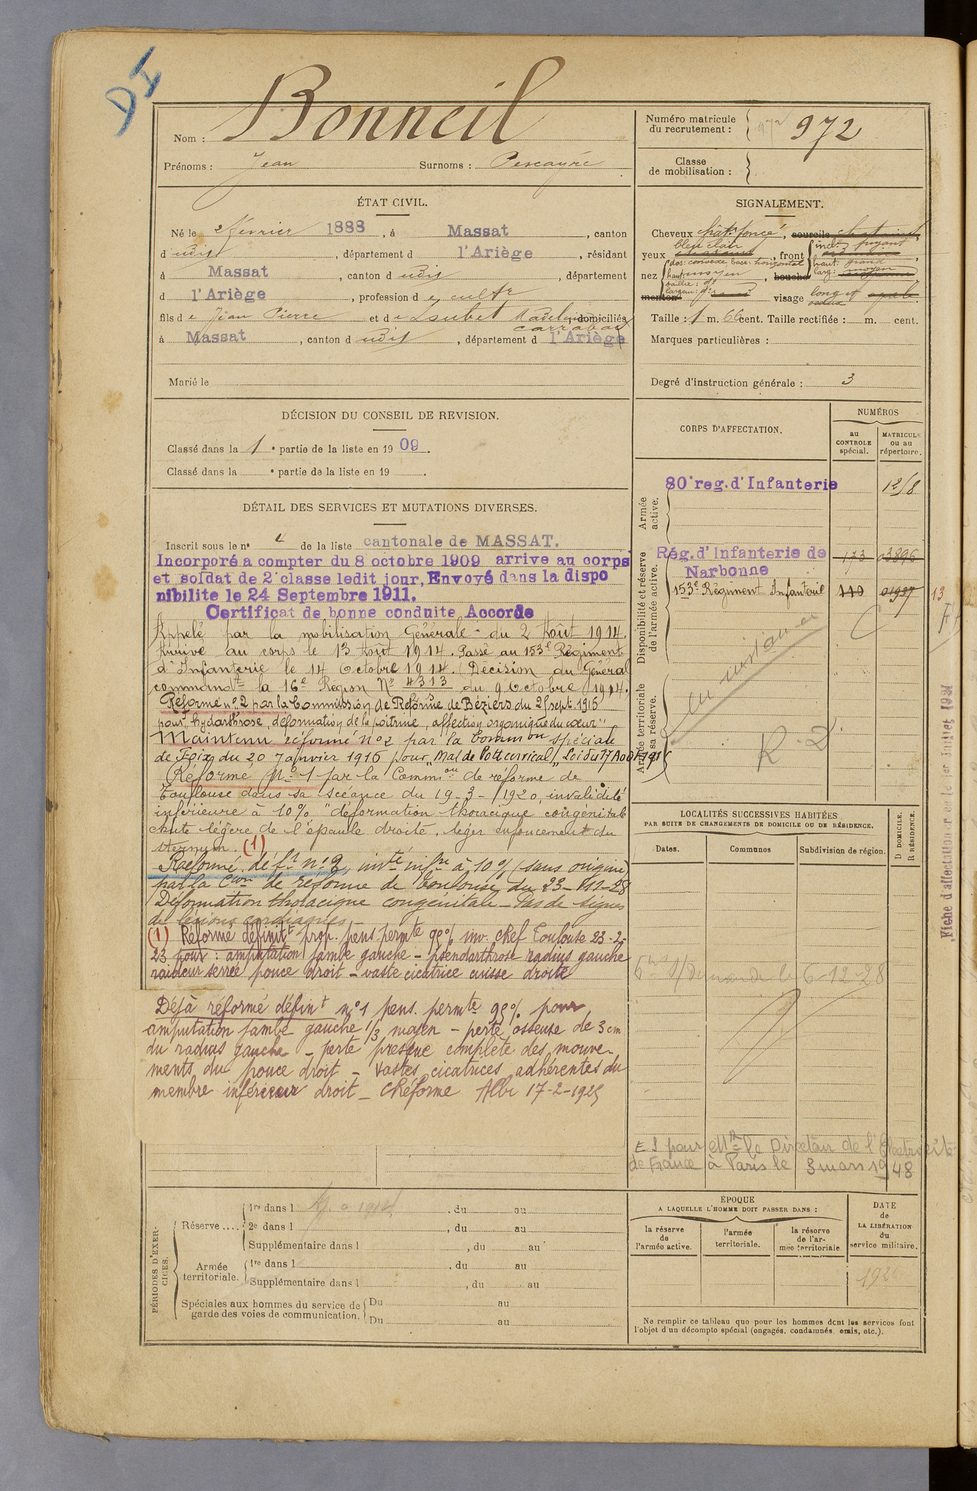 DI
Nom : Bonneil
Prénoms : Jean Surnoms : Pescayré
Numéro matricule du recrutement : 972 972
Classe de mobilisation :
ÉTAT CIVIL.
Né le 2 février 1888, à Massat, canton
d udit, département d l'Ariège, résidant
à Massat, canton d udit, département
d l'Ariège, profession d e cultr
fils d e Jean Pierre et d e Loubet domiciliés
à Massat, canton d udit, département d l'Ariège
Marié le
SIGNALEMENT.
Cheveux chât. foncé, sourcils châtains
yeux bleu clair, front
inclon fuyant
haut: grande
larg: moyen
nez
dos: convexe base: horizontal
haut moyen
saillie: do
largeur: do
bouche
menton visage long et ovale
Taille : 1 m. 66 cent. Taille rectifiée : m. cent.
Marques particulières :
Degré d'instruction générale : 3
DÉCISION DU CONSEIL DE REVISION.
Classé dans la 1 e partie de la liste en 1909.
Classé dans la e partie de la liste en 19 .
CORPS D'AFFECTATION.
NUMÉROS
au CONTROLE spécial.
MATRICULE ou au répertoire.
Armée active.
80e reg. d'Infanterie
Disponibilité et réserve de l'armée active.
Rég. d'Infanterie de Narbonne 173 03896
153e Régiment Infanterie 110 01997
Armée territoriale et sa réserve.
R. 2
DÉTAIL DES SERVICES ET MUTATIONS DIVERSES.
Inscrit sous le n° 4 de la liste cantonale de MASSAT.
Incorporé a compter du 8 octobre 1909 arrive au corps
et soldat de 2e classe ledit jour, Envoyé dans la dispo
nibilite le 24 Septembre 1911.
Certificat de bonne conduite Accorde
Appelé par la mobilisation Générale du 2 Août 1914.
Arrivé au corps le 13 Août 1914. Passé au 153e Régiment
d'Infanterie le 14 Octobre 1914. (Décision du Général
commandt la 16e Région No 4313 du 9 Octobre 1914.
Réformé n° 2 par la Commission de Réforme de Béziers du 2 sept. 1915
pour "hydarthrose, déformation de la poitrine, affection organique du cœur"
Maintenu réformé n° 2 par la Commion spéciale
de Foix du 20 Janvier 1916 pour "Mal de Pott cervical" Loi du 17 Août 1915
Réforme No 1 par la Common de réforme de
Toulouse dans sa scéance du 19-3-1920, invalidité
inférieure à 10% "déformation thoracique congénitale
chute légère de l'épaule droite, léger enfoncement du
sternum. (1)
Réformé déft n° 2, invté infre à 10% (sans origine)
par la Con de réforme de Toulouse du 23-11-28
Déformation thoracique congenitale - Pas de signes
de lésions cardiaques
(1) Réformé définitt prop. pens permte 95% inv. Cref Toulouse 23-2-
23 pour : amputation jambe gauche - pseudarthrose radius gauche
raideur serrée pouce droit - vaste cicatrice cuisse droite
Déjà réformé défint n° 1 pens. permte 95% pour
amputation jambe gauche 1/3 moyen - perte osseuse de 3 cm
du radius gauche - perte presque complète des mouve-
ments du pouce droit - vastes cicatrices adhérentes du
membre inférieur droit - Créforme Albi 17-2-1925
LOCALITÉS SUCCESSIVES HABITÉES
PAR SUITE DE CHANGEMENTS DE DOMICILE OU DE RÉSIDENCE.
Dates. Communes Subdivision de région. D DOMICILE. R RÉSIDENCE.
le 6-12-28
E S pour Mr le Directeur de l'Electricité
de France à Paris le 3 mars 1948
Fiche d'affectation
PÉRIODES D'EXERCICES.
Réserve ....
1re dans l , du au
2e dans l , du au
Supplémentaire dans l , du au
Armée territoriale.
1re dans l , du au
Supplémentaire dans l , du au
Spéciales aux hommes du service de garde des voies de communication.
Du au
Du au
ÉPOQUE
A LAQUELLE L'HOMME DOIT PASSER DANS :
la réserve de l'armée active.
l'armée territoriale.
la réserve de l'armée territoriale
DATE de LA LIBÉRATION du service militaire.
Ne remplir ce tableau que pour les hommes dont les services font
l'objet d'un décompte spécial (engagés, condamnés, omis, etc.).